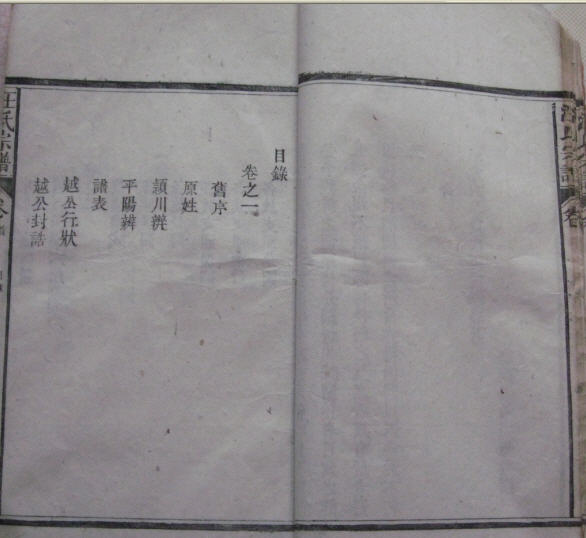 目錄
卷之一
舊序
原姓
潁川辨
平陽辨
譜表
越公行狀
越公封誥
汪氏宗譜
汪氏宗譜 卷